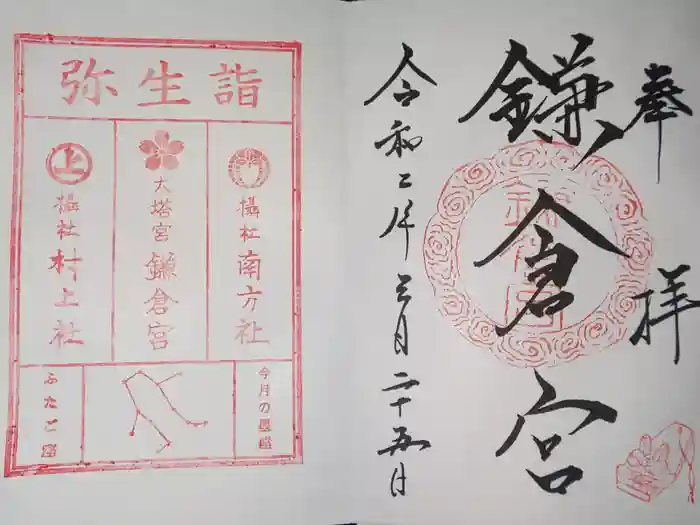 奉拝
鎌倉宮
令和二年三月二十五日
鎌倉宮
弥生詣
攝社 南方社
大塔宮 鎌倉宮
上
攝社 村上社
今月の星座
ふたご座